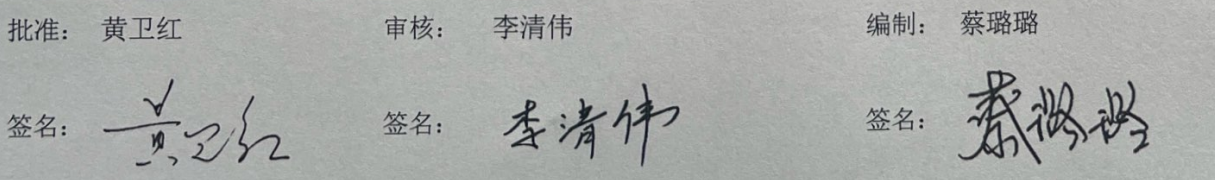 批准： 黄卫红 审核： 李清伟 编制： 蔡璐璐
签名： 黄卫红 签名： 李清伟 签名： 蔡璐璐